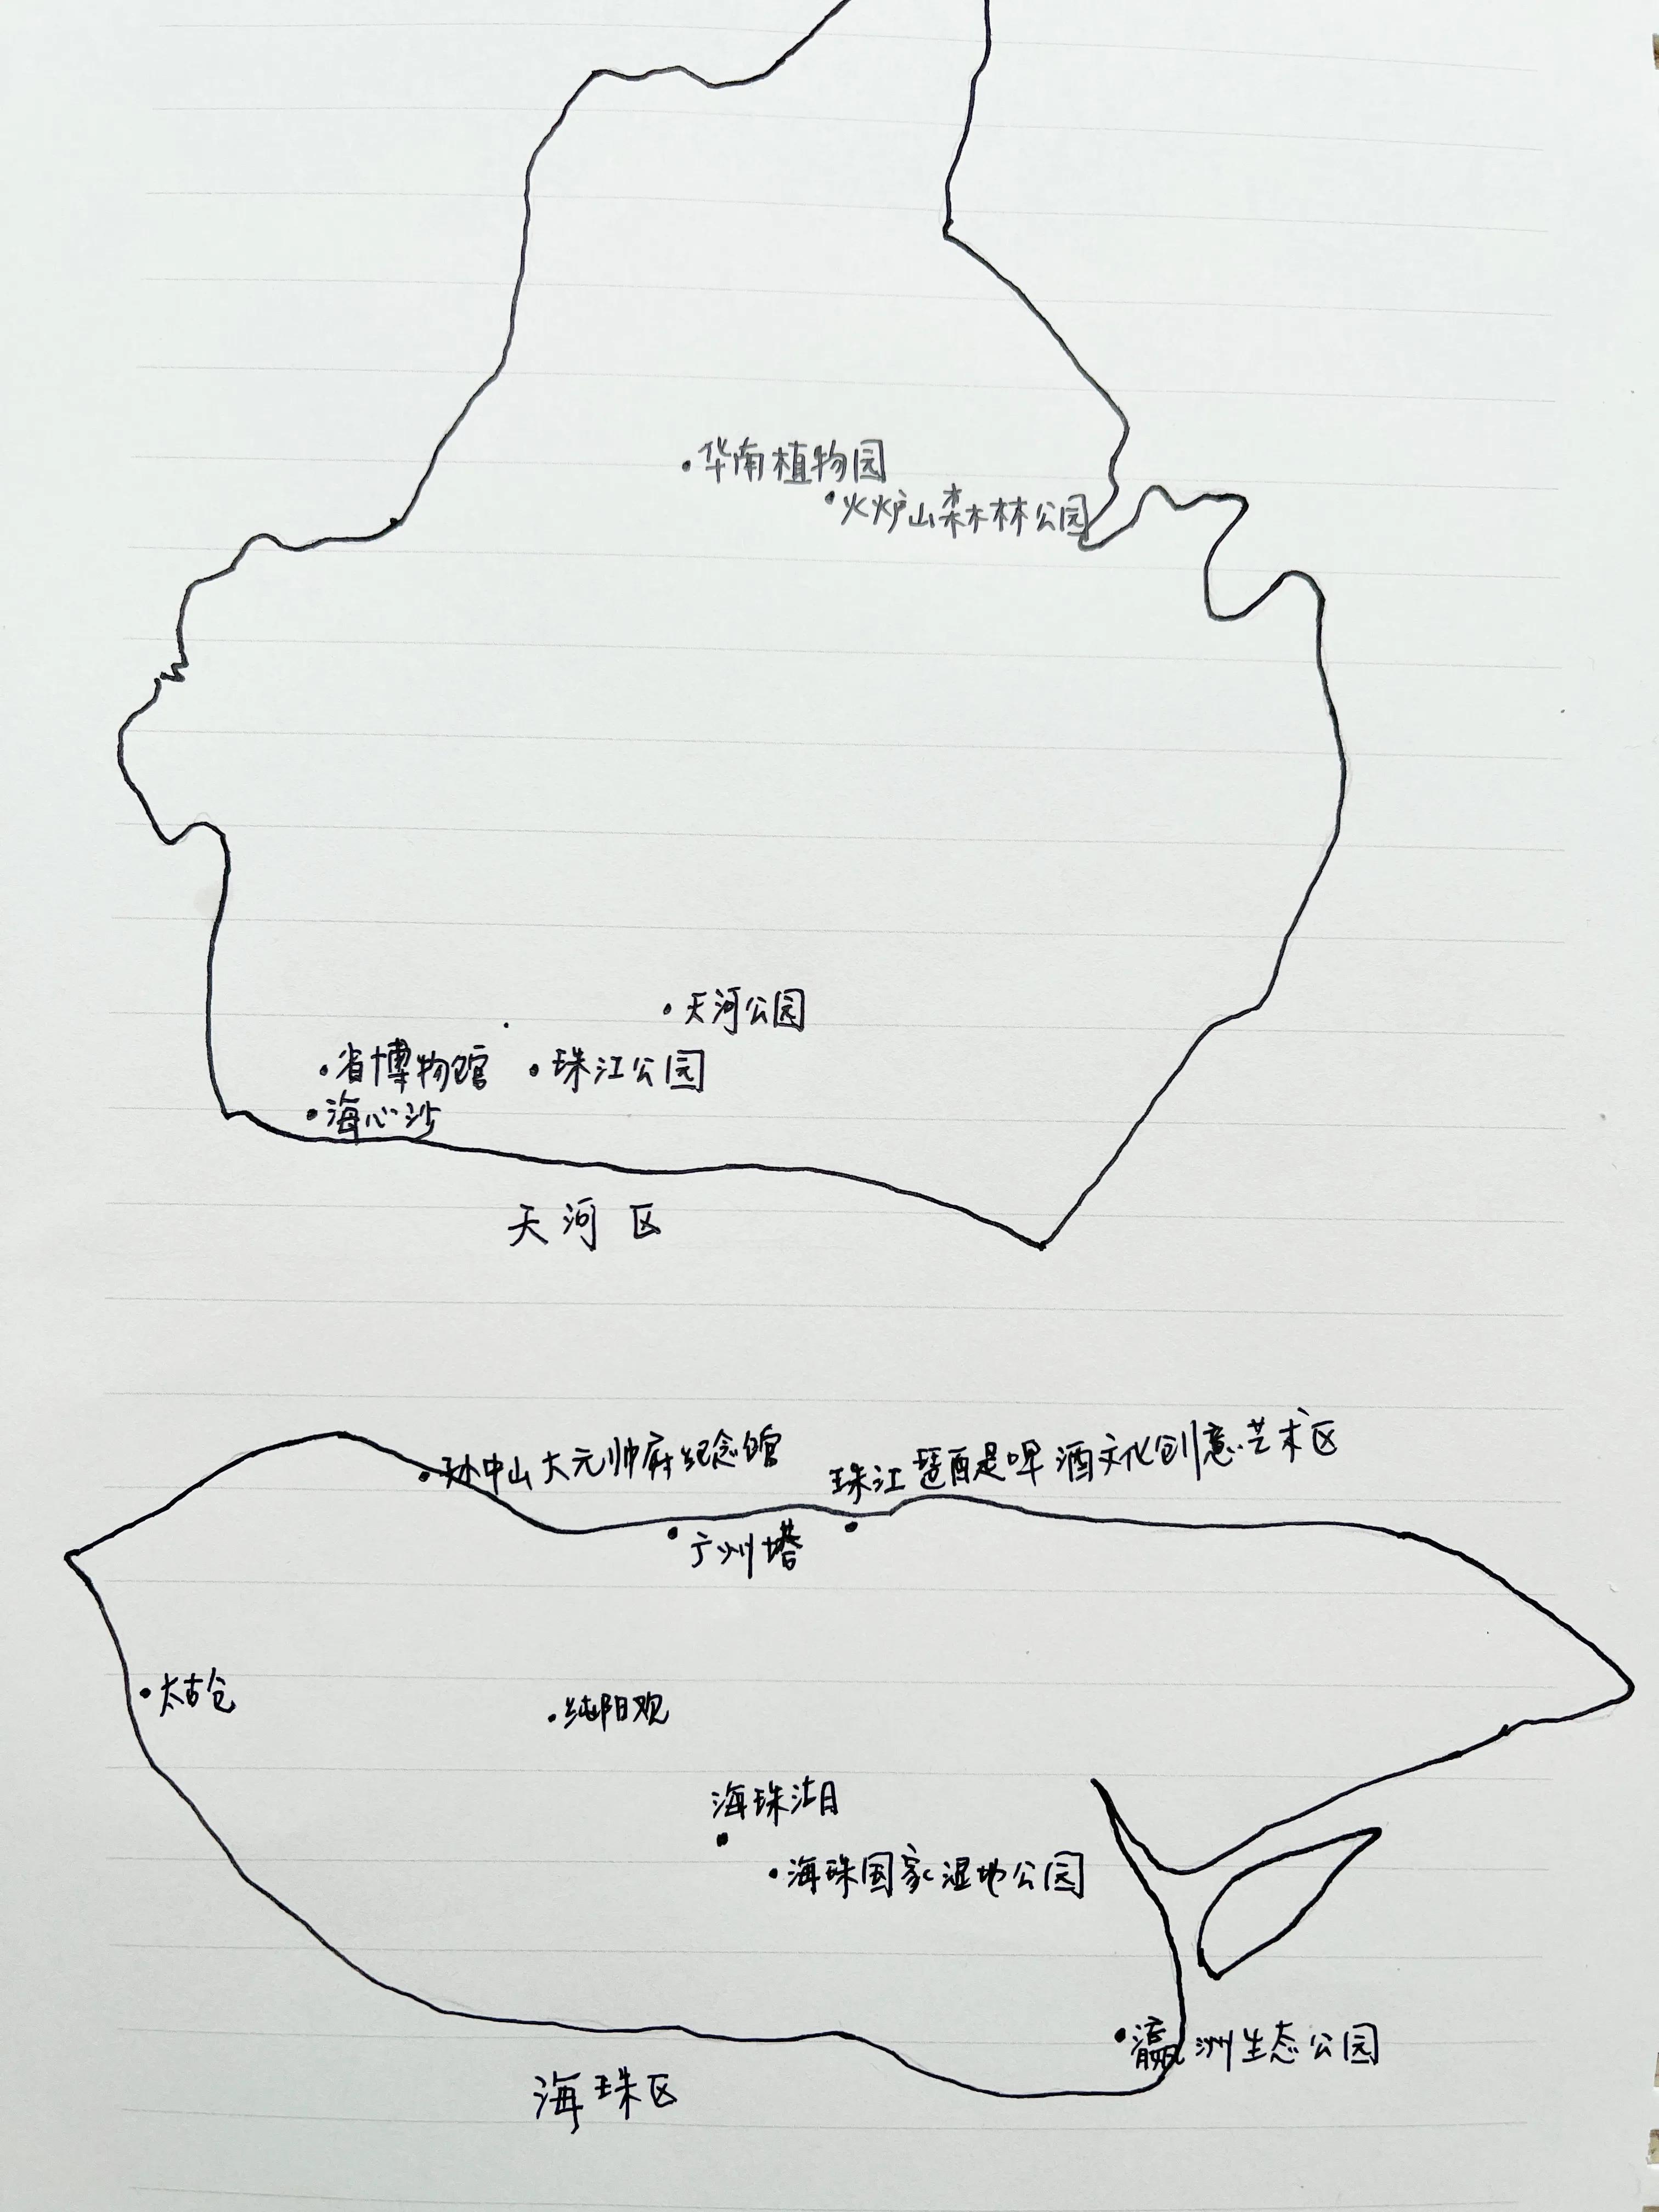 华南植物园
火炉山森林公园
天河公园
省博物馆
珠江公园
海心沙
天河区
孙中山大元帅府纪念馆
珠江琶醍啤酒文化创意艺术区
广州塔
太古仓
纯阳观
海珠湖
海珠国家湿地公园
瀛洲生态公园
海珠区